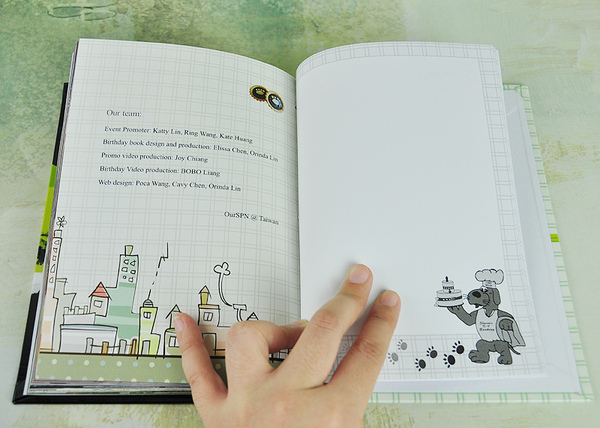 Our team:
Event Promoter: Katty Lin, Ring Wang, Kate Huang
Birthday book design and production: Elissa Chen, Orinda Lin
Promo video production: Joy Chiang
Birthday Video production: BOBO Liang
Web design: Poca Wang, Cavy Chen, Orinda Lin
OurSPN @ Taiwan